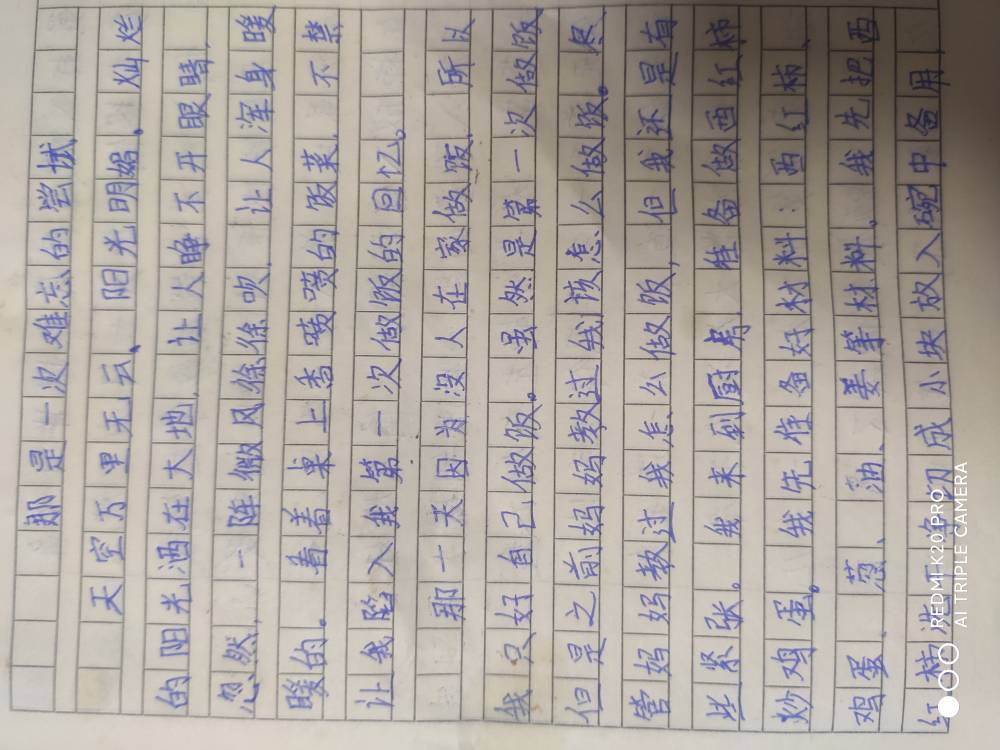 那是一次难忘的尝试
天空万里无云、阳光明媚。灿烂
的阳光洒在大地,让人睁不开眼睛,
忽然,一阵微风徐徐吹,让人浑身暖
暖的。看着桌上香喷喷的饭菜,不禁
让我陷入我第一次做饭的回忆。
那一天因为没人在家做饭,所以
我只好自己做饭。虽然是第一次做饭
但是之前妈妈教过我该怎么做饭。尽
管妈妈教过我怎么做饭,但我还是有
些紧张。我来到厨房准备做西红柿
炒鸡蛋。我先准备好材料:西红柿、
鸡蛋、葱、油、姜等材料。我先把西
红柿洗干净切成小块放入碗中备用,
REDMI K20 PRO
AI TRIPLE CAMERA